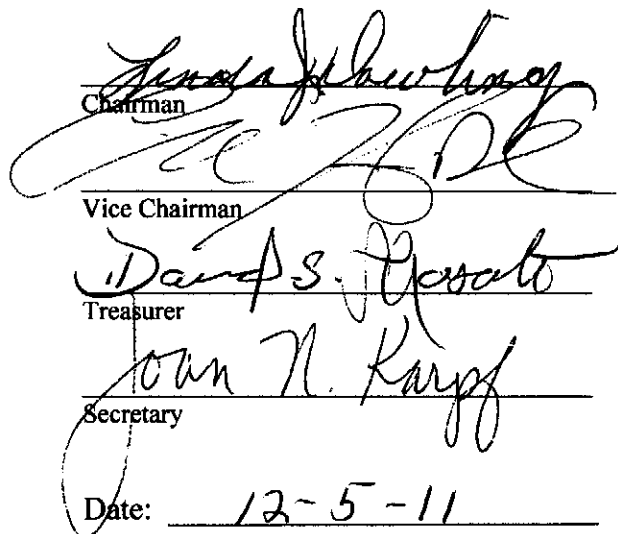 Linda J. Dowling
Chairman
Vice Chairman
David S. Rosato
Treasurer
Joan N. Karpf
Secretary
Date: 12-5-11